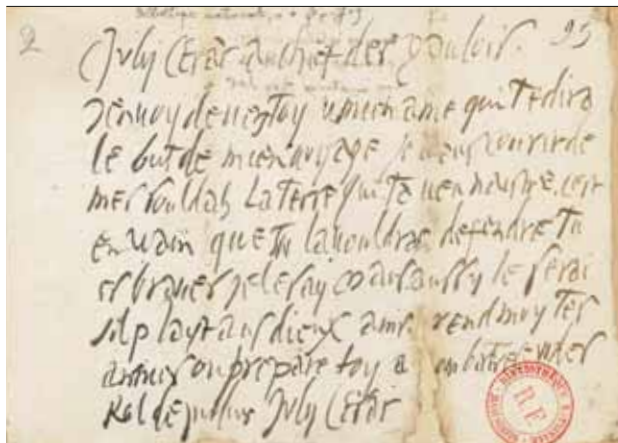 2 July Cesar au chief des gaulois. 95
Jenvoy devers toy umien ame qui te dira
le but de mien voyage je veus couvrir de
mes souldats La terre qui ta veu naistre. cest
en vain que Tu la vouldras defendre Tu
es braves je le say mais aussy le seray
silplayt aus dieux ainsi rend moy Tes
armes ou prepare toy a combatre
Kal de julius July Cesar
R.F